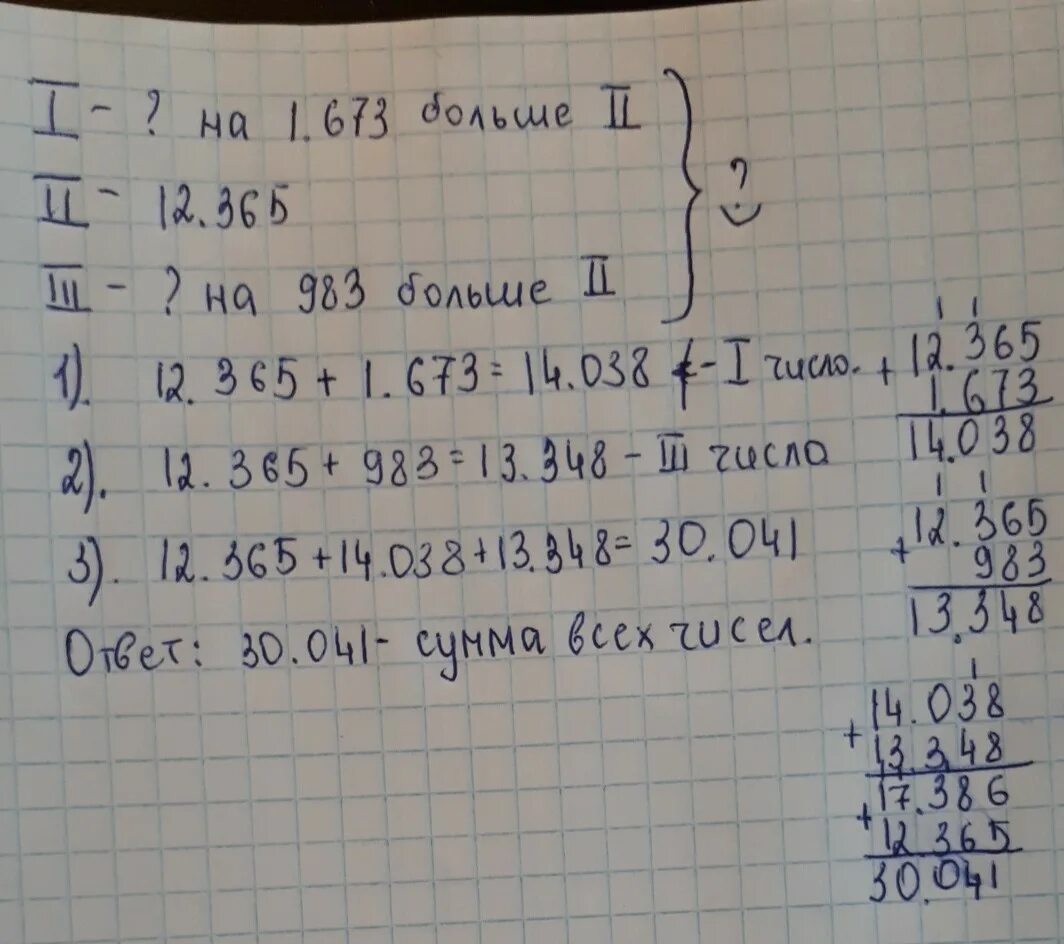 I - ? на 1.673 больше II
II - 12.365
III - ? на 983 больше II
?
1). 12.365 + 1.673 = 14.038 - I число.
2). 12.365 + 983 = 13.348 - III числа
3). 12.365 + 14.038 + 13.348 = 30.041
Ответ: 30.041 - сумма всех чисел.
1 1
+ 12.365
1.673
14.038
1 1
+ 12.365
983
13.348
1
+ 14.038
13.348
+ 17.386
12 365
30.041